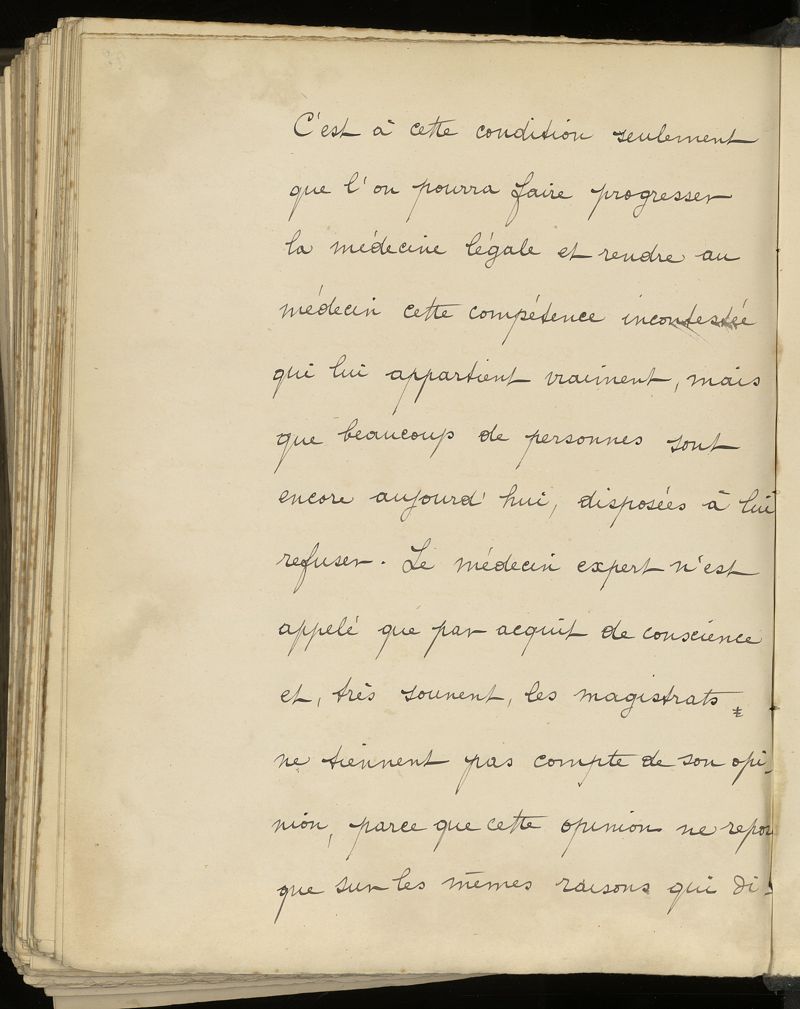 C'est à cette condition seulement
que l'on pourra faire progresser
la médecine légale et rendre au
médecin cette compétence incontestée
qui lui appartient vraiment, mais
que beaucoup de personnes sont
encore aujourd'hui, disposées à lui
refuser. Le médecin expert n'est
appelé que par acquit de conscience
et, très souvent, les magistrats
ne tiennent pas compte de son opi-
nion, parce que cette opinion ne repo
que sur les mêmes raisons qui di-